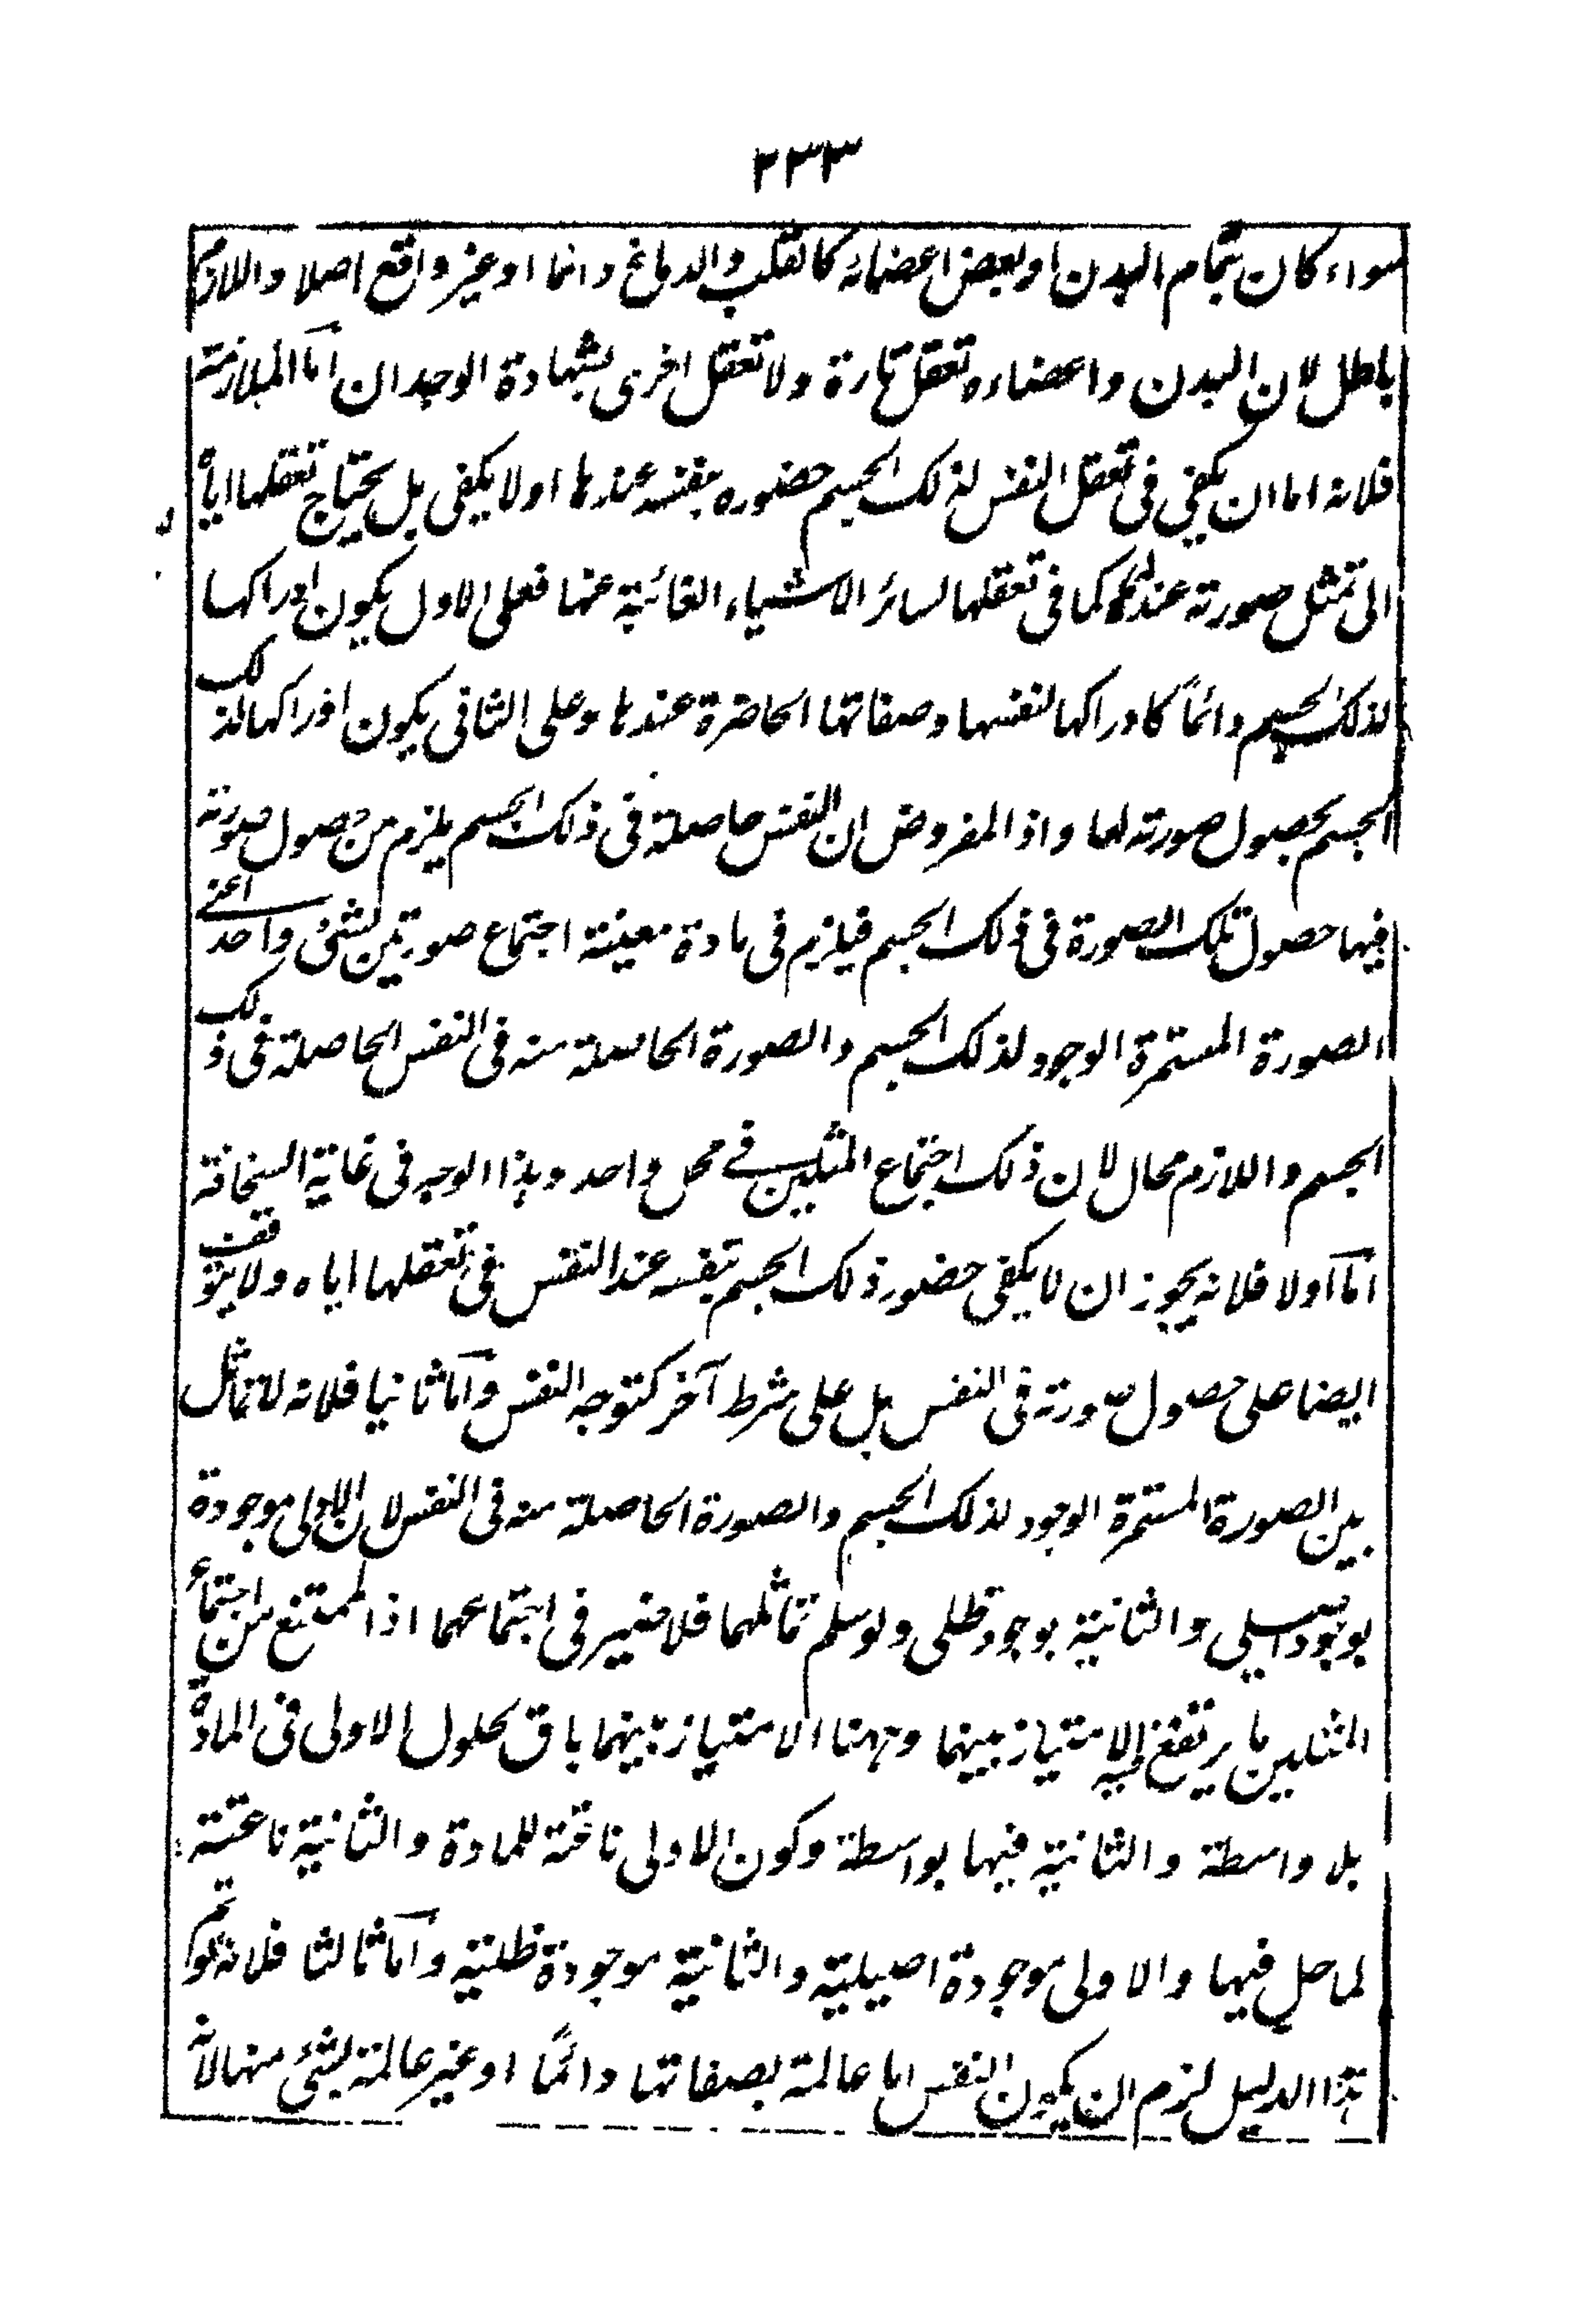 ٢٣٣
سواء كان تمام البدن او بعض اعضائه كالقلب والدماغ دائما او غير واقع اصلا واللازم
باطل لان البدن واعضاءه تعقل تارة ولا تعقل اخرى بشهادة الوجدان امّا الملازمة
فلانه اما ان يكفى فى تعقل النفس لذلك الجسم حضوره بنفسه عندها او لا يكفى بل يحتاج تعقلها اياه
الى تمثل صورته عندها كما فى تعقلها لسائر الاشياء الغائبة عنها فعلى الاول يكون ادراكها
لذلك الجسم دائماً كادراكها لنفسها وصفاتها الحاضرة عندها وعلى الثانى يكون ادراكها لذلك
الجسم بحصول صورته لها واذ المفروض ان النفس حاصلة فى ذلك الجسم يلزم من حصول صورته
فيها حصول تلك الصورة فى ذلك الجسم فيلزم فى مادة معينة اجتماع صورتين لشئ واحد اعنى
الصورة المستمرة الوجود لذلك الجسم والصورة الحاصلة منه فى النفس الحاصلة فى ذلك
الجسم واللازم محال لان ذلك اجتماع المثلين فى محل واحد وهذا الوجه فى غاية السخافة
امّا اولا فلانه يجوز ان لا يكفى حضور ذلك الجسم بنفسه عند النفس فى تعقلها اياه ولا يتوقف
ايضا على حصول صورته فى النفس بل على شرط آخر كتوجه النفس وامّا ثانيا فلانه لا تماثل
بين الصورة المستمرة الوجود لذلك الجسم والصورة الحاصلة منه فى النفس لان الاولى موجودة
بوجود اصيلى والثانية بوجود ظلى ولو سلم تماثلهما فلا ضير فى اجتماعهما اذ الممتنع من اجتماع
المثلين ما يرتفع به الامتياز بينهما وههنا الامتياز بينهما باق لحلول الاولى فى المادة
بلا واسطة والثانية فيها بواسطة وكون الاولى ناعتة للمادة والثانية ناعتة
لما حل فيها والاولى موجودة اصيلية والثانية موجودة ظلية وامّا ثالثا فلانه لو تم
هذا الدليل لزم ان يكون النفس اما عالمة بصفاتها دائمًا او غير عالمة بشئ منها لانه